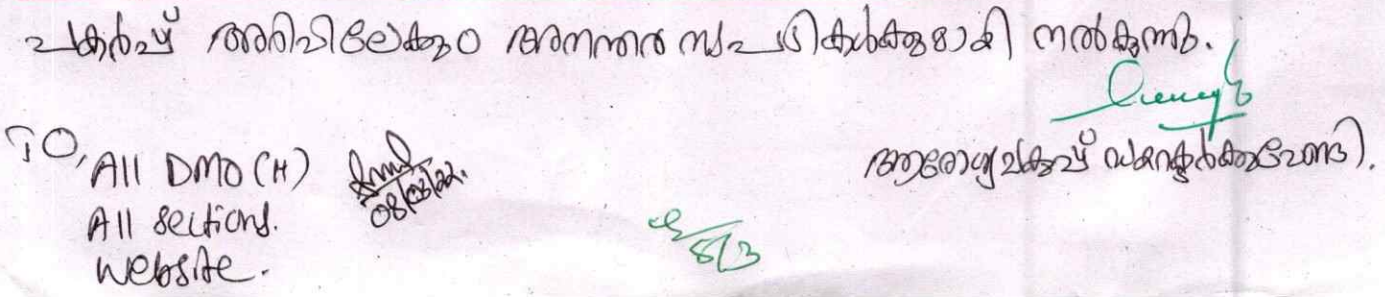 പകർപ്പ് അറിവിലേക്കും അനന്തര നടപടികൾക്കുമായി നൽകുന്നു.
ആരോഗ്യവകുപ്പ് ഡയറക്ടർക്കുവേണ്ടി.
TO,
All DMO (H)
08/03/22.
All sections.
Website.
8/3